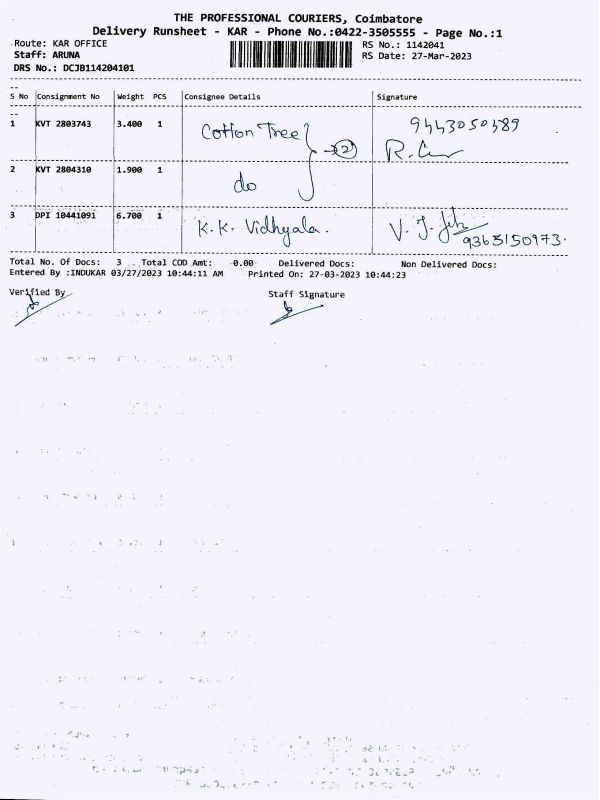 THE PROFESSIONAL COURIERS, Coimbatore
Delivery Runsheet - KAR - Phone No.:0422-3505555 - Page No.:1
Route: KAR OFFICE RS No.: 1142041
Staff: ARUNA RS Date: 27-Mar-2023
DRS No.: DCJB114204101
S No Consignment No Weight PCS Consignee Details Signature
1 KVT 2803743 3.400 1 Cotton Tree 2 9443050589
R.
2 KVT 2804310 1.900 1 do
3 DPI 10441091 6.700 1 K.K. Vidhyala. V. J.
9363150973.
Total No. Of Docs: 3 Total COD Amt: -0.00 Delivered Docs: Non Delivered Docs:
Entered By :INDUKAR 03/27/2023 10:44:11 AM Printed On: 27-03-2023 10:44:23
Verified By Staff Signature